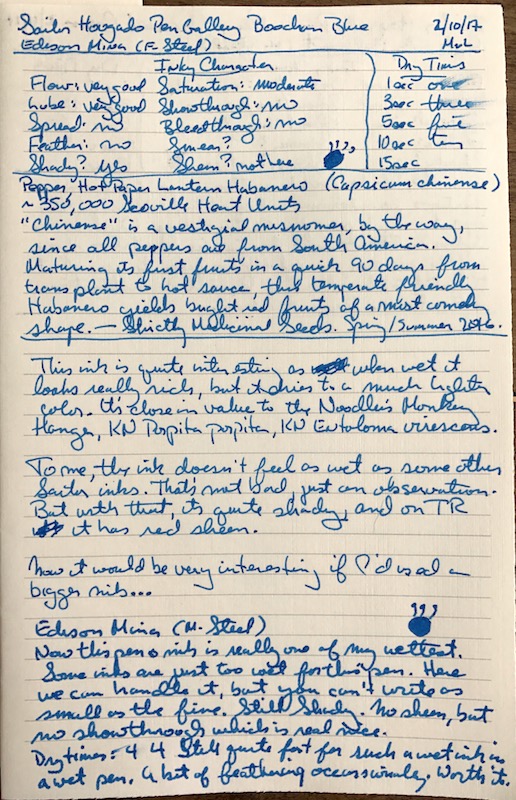 Sailor Hougado Pen Gallery Boochan Blue 2/10/17
Edison Mina (F. Steel)
Inky Character
Dry Times
Flow: very good Saturation: moderate 1sec one
Lube: very good Showthrough: no 3sec three
Spread: no Bleedthrough: no 5sec five
Feather: no Smear? 10sec ten
Shady? yes Sheen? not here 15sec
Pepper, Hot Paper Lantern Habanero (Capsicum chinense)
~ 350,000 Scoville Heat Units
"Chinense" is a vestigial misnomer, by the way,
since all peppers are from South America.
Maturing its first fruits in a quick 90 days from
transplant to hot sauce, this temperate friendly
Habanero yields bright red fruits of a most comely
shape. — Strictly Medicinal Seeds. Spring/Summer 2016.
This ink is quite interesting as when wet it
looks really rich, but it dries to a much lighter
color. It's close in value to the Noodler's Monkey
Hanger, KN Porpita porpita, KN Entoloma virescens.
To me, the ink doesn't feel as wet as some other
Sailor inks. That's not bad, just an observation.
But with that, it's quite shady, and on TR
it has red sheen.
Now it would be very interesting if I'd used a
bigger nib...
Edison Mina (M. Steel)
Now this pen & nib is really one of my wettest.
Some inks are just too wet for this pen. Here
we can handle it, but you can't write as
small as the fine. Still shady. No sheen, but
no showthrough which is real nice.
Dry times: 4 4 Still quite fast for such a wet ink in
a wet pen. A bit of feathering occasionally. Worth it.